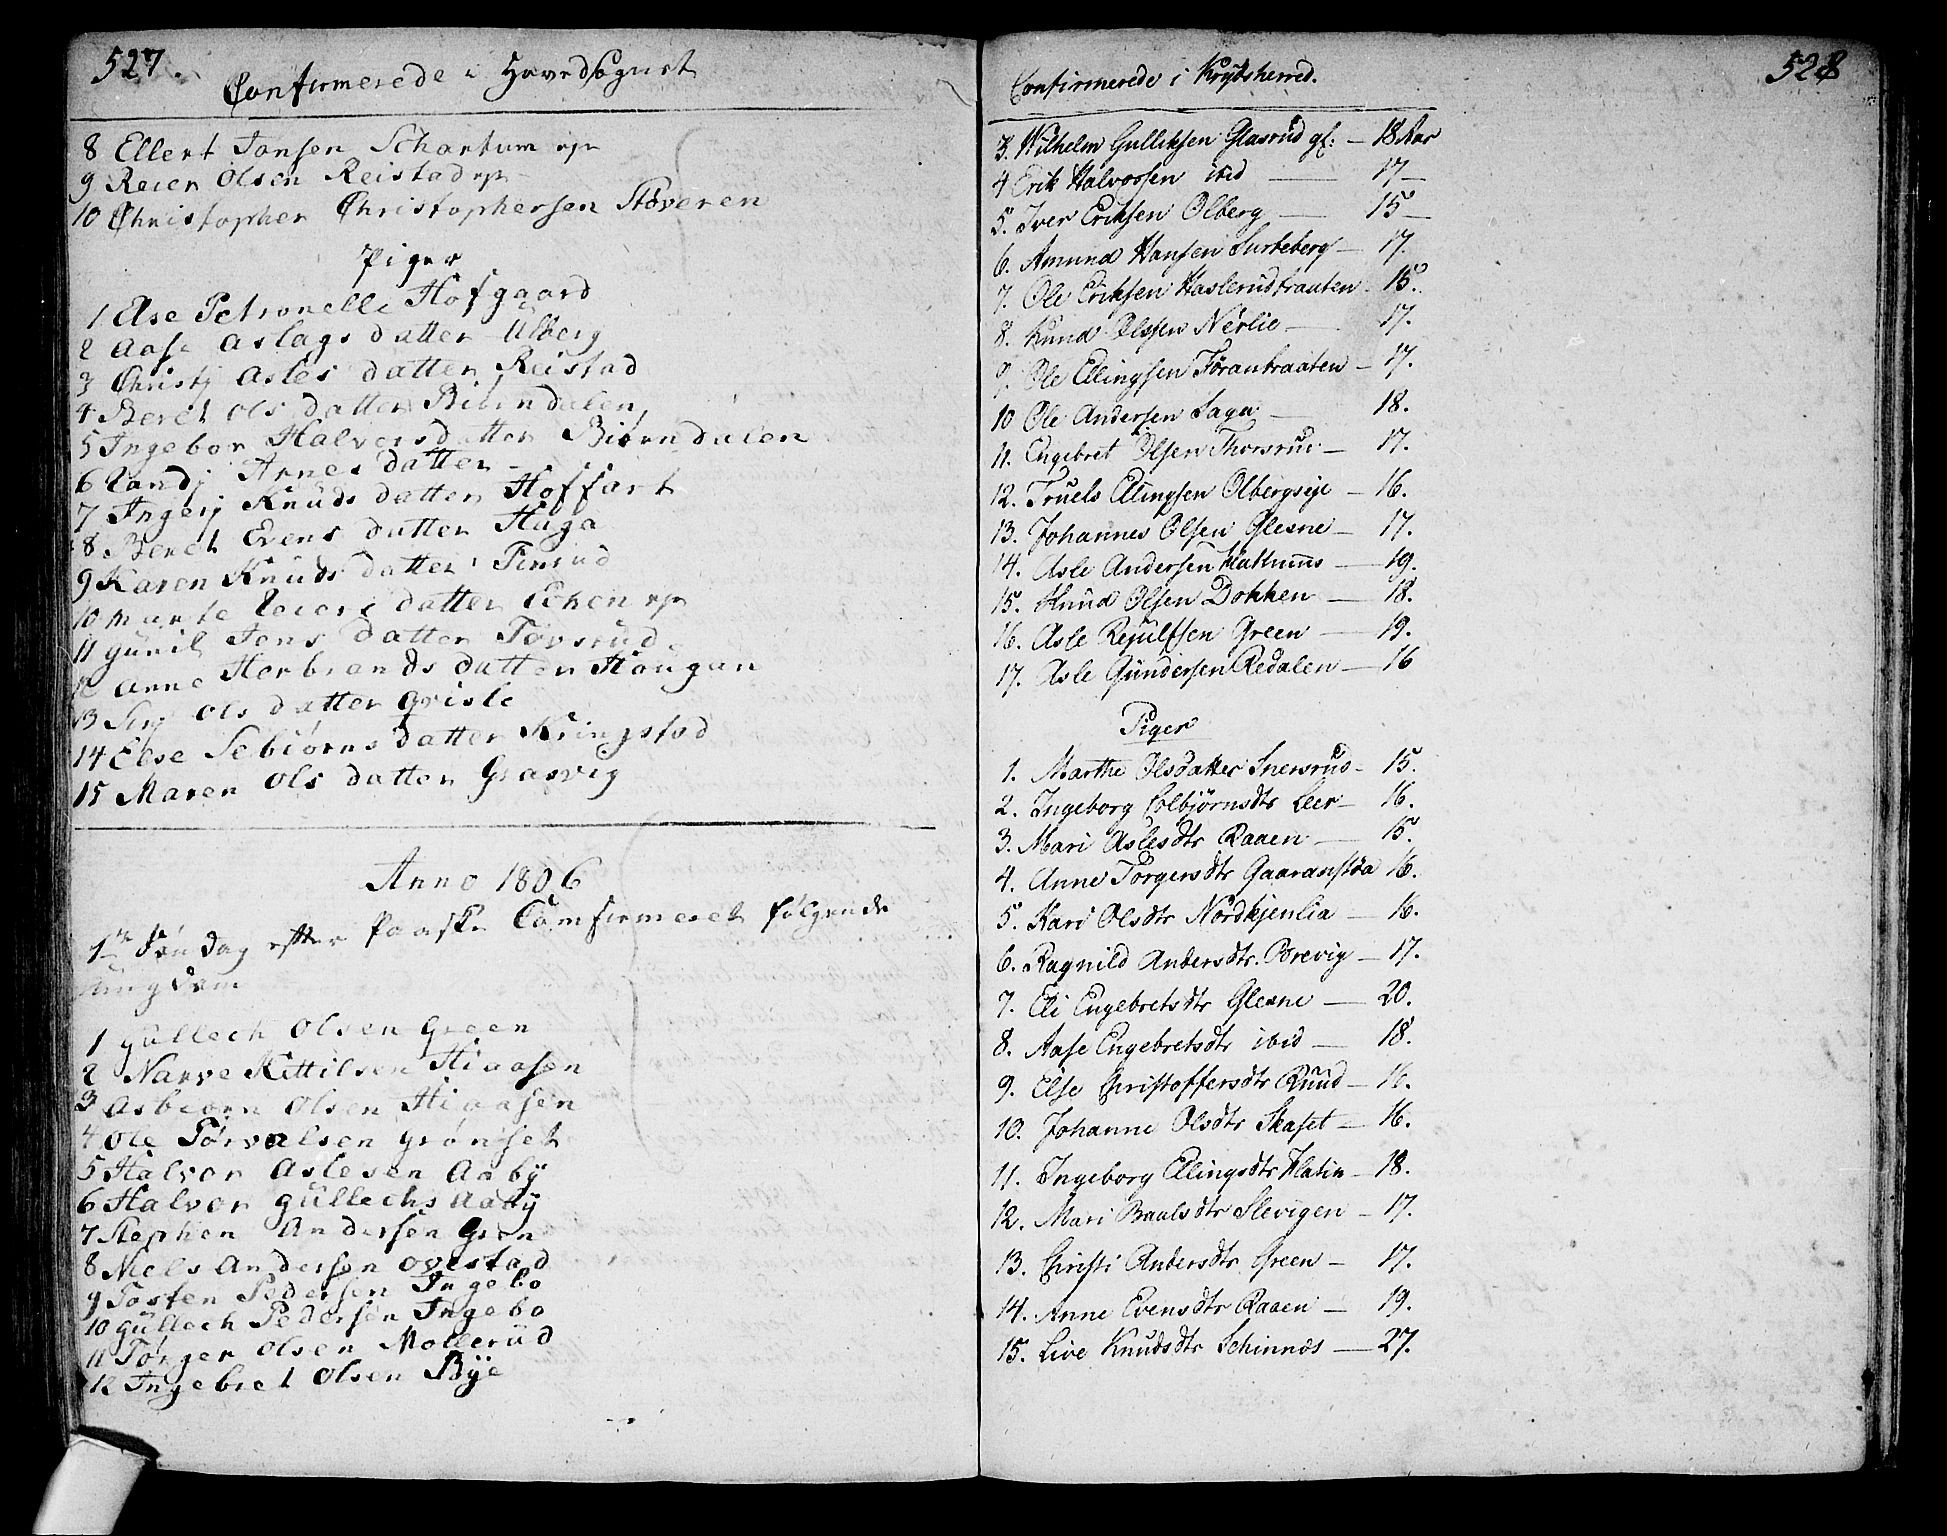 527.
Confirmerede i Hovedsognet
8 Ellert Jonsen Schartum eje
9 Reier Olsen Reistad eje
10 Christopher Christophersen Støveren
Piger
1 Else Petronelle Hofgaard
2 Aase Aslags datter Ulberg
3 Christj Asles datter Reistad
4 Beret Ols datter Biørndalen
5 Ingebor Halvorsdatter Biørndalen
6 Randj Arnes datter
7 Ingerj Knuds datter Hoffart
8 Beret Evens datter Haga
9 Karen Knuds datter
10 Marte Reiers datter Echen eje
11 Gunil Jens datter Tovsrud
12 Anne Herbrands datter Haugan
13 Sirj Ols datter Grisle
14 Else Torbiørnsdatter Kringstad
15 Maren Ols datter Grasvig
Anno 1806
1te Søndag efter Paaske Comfirmeret følgende
ungdom
1 Gullech Olsen Green
2 Narve Kittilsen Hiaasen
3 Asbiørn Olsen Hiaasen
4 Ole Torvalsen Grønset
5 Halvor Aslesen Aabÿ
6 Halvor Gullechs Aabÿ
7 Stephen Andersen Gren
8 Niels Andersen Ovestad
9 Tosten Pedersen Ingebo
10 Gullech Pedersen Ingebo
11 Torger Olsen Mollerud
12 Ingebret Olsen Bÿe
528
Confirmerede i Krydsherred.
3. Wilhelm Gulliksen Glasrud gl: — 18 Aar
4 Erik Halvorsen ibid — 17 —
5. Iver Eriksen Olberg — 15 —
6. Amund Hansen Surteberg — 17.
7. Ole Eriksen Haslerudbraaten 15.
8. Knud Olssen Nerlie — 17.
9. Ole Ellingsen Føranbraaten — 17.
10 Ole Andersen Saga — 18.
11. Engebret Olsen Thorsrud — 17.
12. Truels Ellingsen Olbergseje — 16.
13. Johannes Olsen Glesne — 17.
14. Asle Andersen — 19.
15. Knud Olsen Dokken — 18.
16. Asle Rejulfsen Green — 19.
17. Asle Gundersen Redalen — 16
Piger
1. Marthe Olsdatter Snersrud — 15.
2. Ingeborg Colbjørnsdtr Leer — 16.
3. Mari Aslesdtr Raaen — 15.
4. Anne Torgersdtr Gaaranstøa 16.
5. Kari Olsdtr Nordkjenlia — 16.
6. Ragnild Andersdtr. Brevig — 17.
7. Eli Engebretsdtr Glesne — 20.
8. Aase Engebretsdtr ibid — 18.
9. Else Christoffersdtr Ruud — 16.
10. Johanne Olsdtr Skaset — 16.
11. Ingeborg Ellingsdtr Flatin — 18.
12. Mari Baalsdtr Slevigen — 17.
13. Christi Andersdtr Green — 17.
14. Anne Evensdtr Raaen — 19.
15. Live Knudsdtr Schinnes — 27.